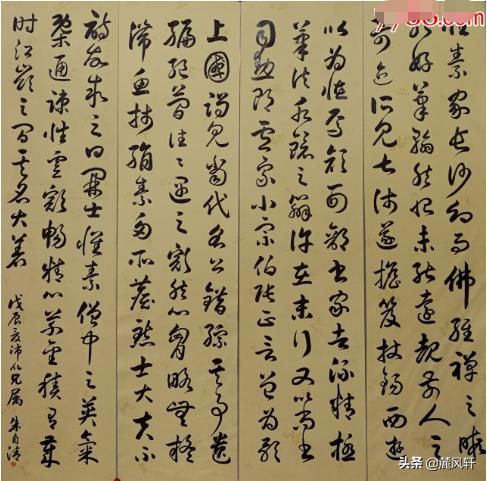 懷素家長沙幼而事佛經禪之暇
頗好筆翰然恨未能遠覩前人之
奇迹所見甚淺遂擔笈杖錫西遊
以為怪焉顏刑部書家者流精極
筆法水鏡之辯許在末行又以尚書
司勳郎盧象小宗伯張正言曾為歌
上國謁見當代名公錯綜其事遺
編絕簡往往遇之豁然心胸略無疑
滯魚牋絹素多所塵點士大夫不
詩故敘之曰開士懷素僧中之英氣
概通疎性靈豁暢精心草聖積有歲
時江嶺之間其名大著
戊辰夏沛仁兄屬 朱自清
头条 @麓风轩